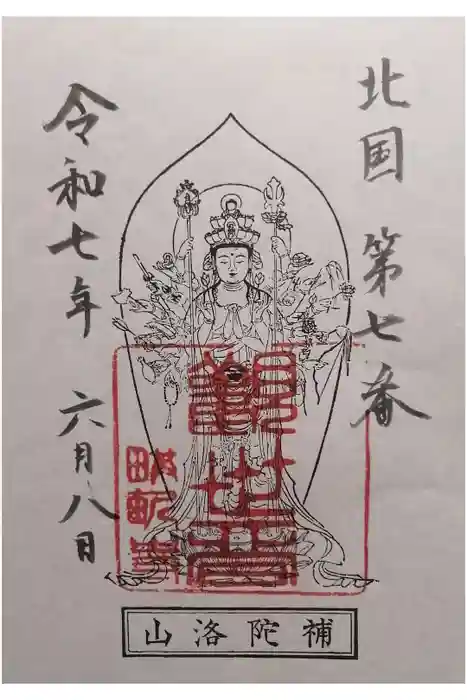 北国 第七番
令和七年 六月八日
観世音
山洛陀補